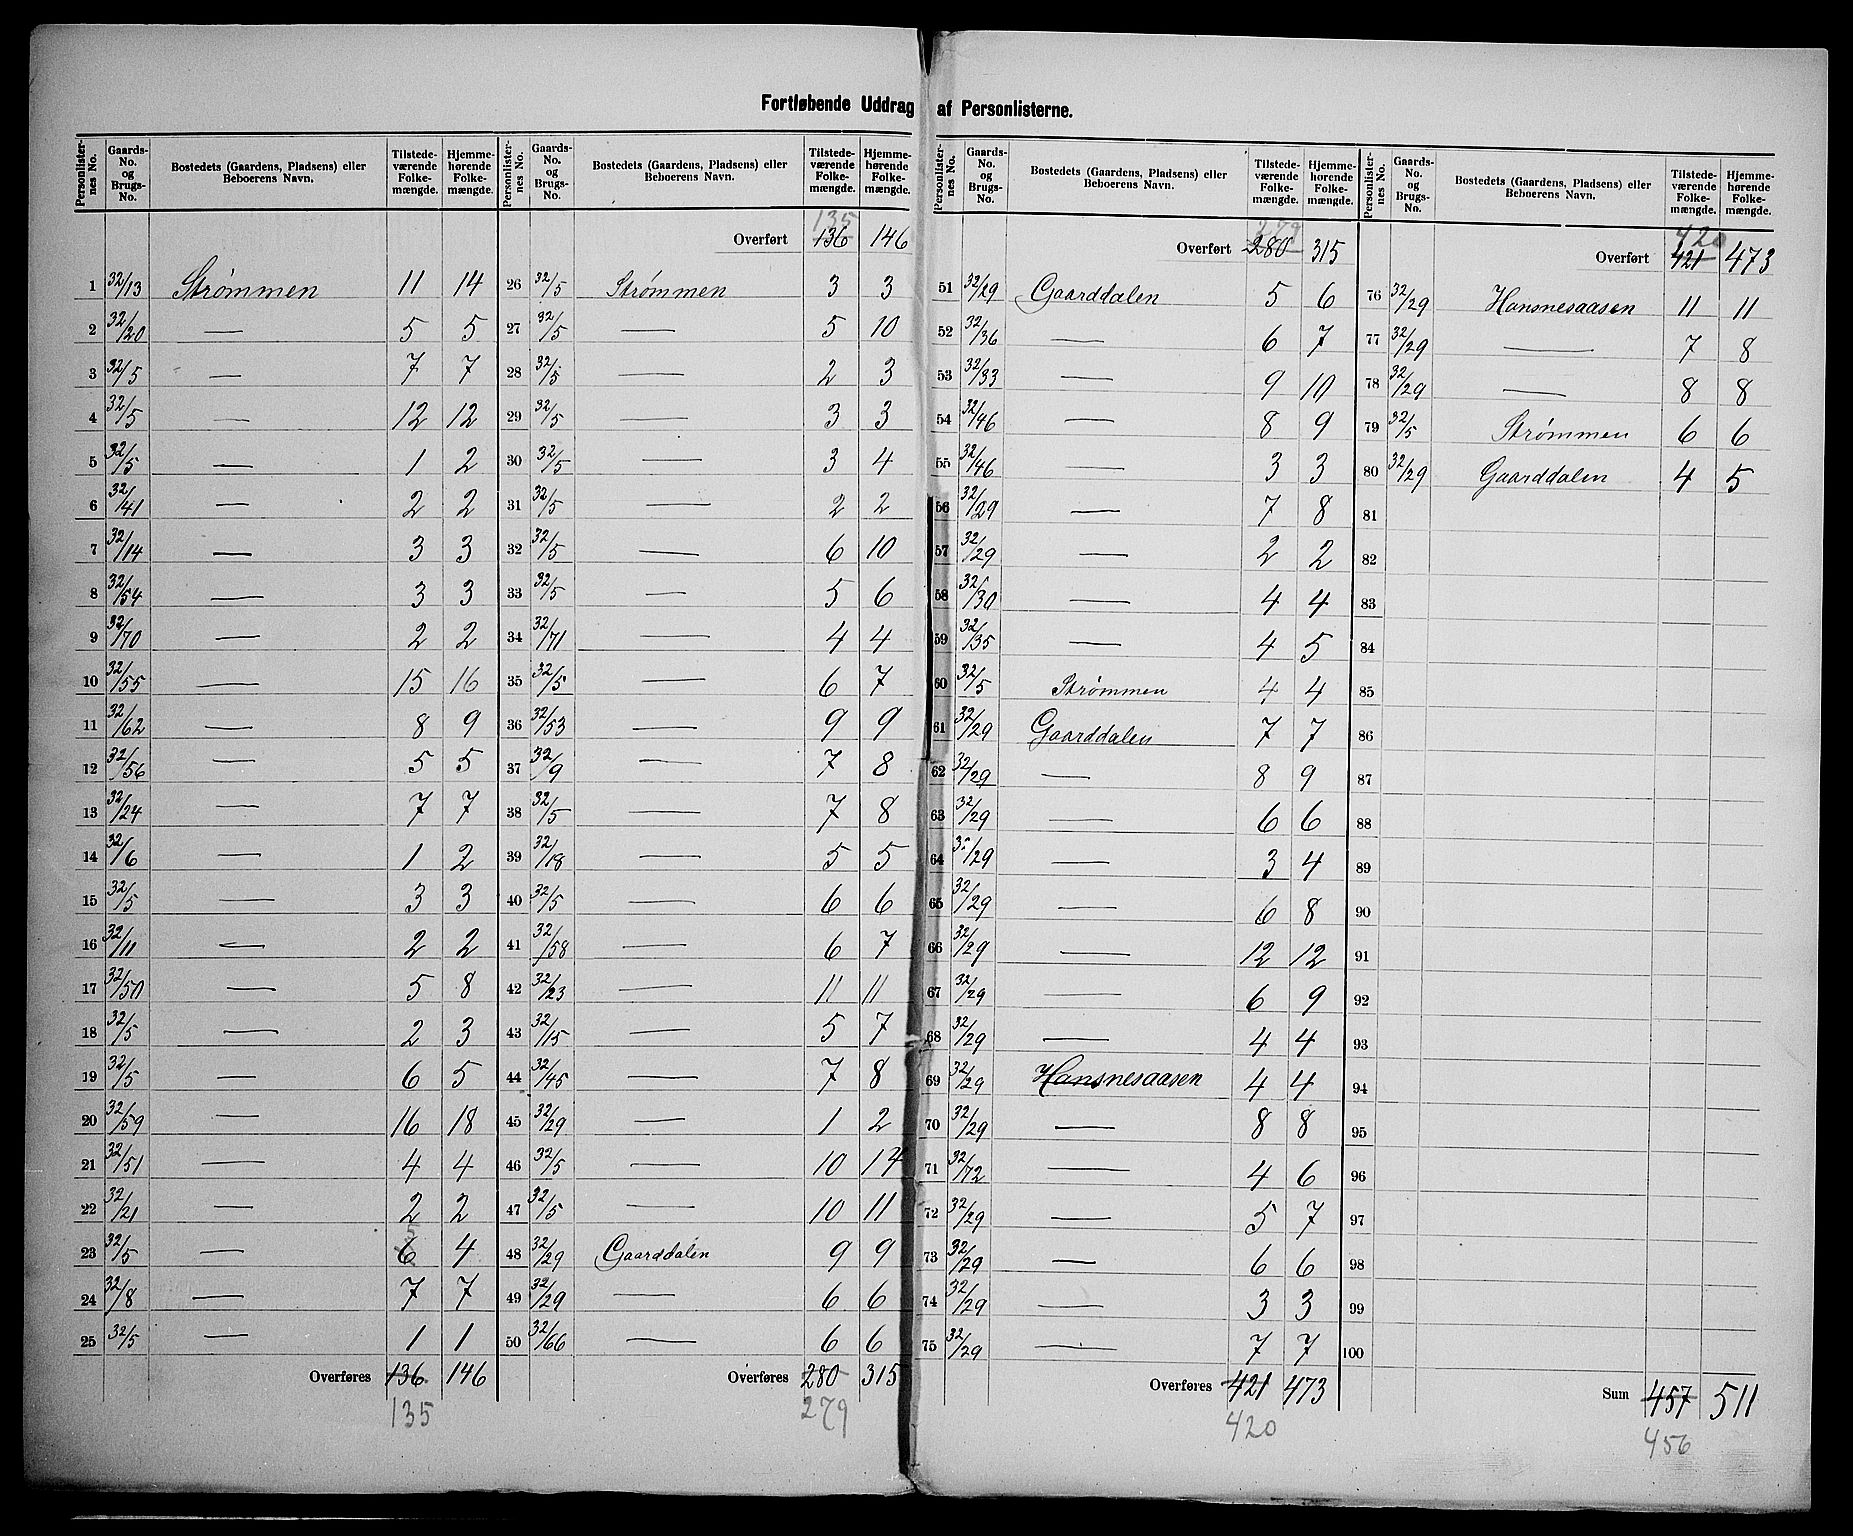 Fortløbende Uddrag af Personlisterne.
Personlister-nes No. | Gaards-No. og Brugs-No. | Bostedets (Gaardens, Pladsens) eller Beboerens Navn. | Tilstede-værende Folke-mængde. | Hjemme-hørende Folke-mængde.
1 32/13 Strømmen 11 14
2 32/20 — 5 5
3 32/5 — 7 7
4 32/5 — 12 12
5 32/5 — 1 2
6 32/41 — 2 2
7 32/14 — 3 3
8 32/54 — 3 3
9 32/70 — 2 2
10 32/55 — 15 16
11 32/62 — 8 9
12 32/56 — 5 5
13 32/24 — 7 7
14 32/6 — 1 2
15 32/5 — 3 3
16 32/11 — 2 2
17 32/50 — 5 8
18 32/5 — 2 3
19 32/5 — 6 5
20 32/59 — 16 18
21 32/51 — 4 4
22 32/21 — 2 2
23 32/5 — 6 5 4
24 32/8 — 7 7
25 32/5 — 1 1
Overføres 136 146
135
Personlister-nes No. | Gaards-No. og Brugs-No. | Bostedets (Gaardens, Pladsens) eller Beboerens Navn. | Tilstede-værende Folke-mængde. | Hjemme-hørende Folke-mængde.
135
Overført 136 146
26 32/5 Strømmen 3 3
27 32/5 — 5 10
28 32/5 — 2 3
29 32/5 — 3 3
30 32/5 — 3 4
31 32/5 — 2 2
32 32/5 — 6 10
33 32/5 — 5 6
34 32/71 — 4 4
35 32/5 — 6 7
36 32/53 — 9 9
37 32/9 — 7 8
38 32/5 — 7 8
39 32/18 — 5 5
40 32/5 — 6 6
41 32/58 — 6 7
42 32/23 — 11 11
43 32/15 — 5 7
44 32/45 — 7 8
45 32/29 — 1 2
46 32/5 — 10 14
47 32/5 — 10 11
48 32/29 Gaarddalen 9 9
49 32/29 — 6 6
50 32/66 — 6 6
Overføres 280 315
279
Personlister-nes No. | Gaards-No. og Brugs-No. | Bostedets (Gaardens, Pladsens) eller Beboerens Navn. | Tilstede-værende Folke-mængde. | Hjemme-hørende Folke-mængde.
279
Overført 280 315
51 32/29 Gaarddalen 5 6
52 32/36 — 6 7
53 32/33 — 9 10
54 32/46 — 8 9
55 32/46 — 3 3
56 32/29 — 7 8
57 32/29 — 2 2
58 32/30 — 4 4
59 32/35 — 4 5
60 32/5 Strømmen 4 4
61 32/29 Gaarddalen 7 7
62 32/29 — 8 9
63 32/29 — 6 6
64 32/29 — 3 4
65 32/29 — 6 8
66 32/29 — 12 12
67 32/29 — 6 9
68 32/29 — 4 4
69 32/29 Hansnesaasen 4 4
70 32/29 — 8 8
71 32/72 — 4 6
72 32/29 — 5 7
73 32/29 — 6 6
74 32/29 — 3 3
75 32/29 — 7 7
Overføres 421 473
420
Personlister-nes No. | Gaards-No. og Brugs-No. | Bostedets (Gaardens, Pladsens) eller Beboerens Navn. | Tilstede-værende Folke-mængde. | Hjemme-hørende Folke-mængde.
420
Overført 421 473
76 32/29 Hansnesaasen 11 11
77 32/29 — 7 8
78 32/29 — 8 8
79 32/5 Strømmen 6 6
80 32/29 Gaarddalen 4 5
81
82
83
84
85
86
87
88
89
90
91
92
93
94
95
96
97
98
99
100
Sum 457 511
456